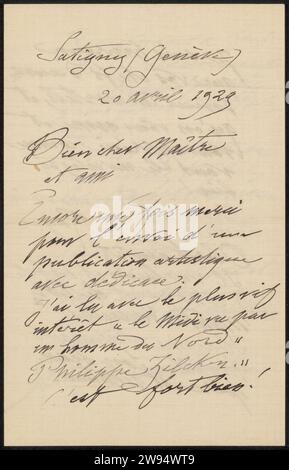 Satigny (Genève)
20 avril 1923
Bien cher Maître
et ami
Encore une fois merci
pour l'envoi d'une
publication artistique
avec dédicace.
J'ai lu avec le plus vif
intérêt « le Midi vu par
un homme du Nord „
Philippe Zilcken. „
C'est fort bien!
alamy
Image ID: 2W94WT9
www.alamy.com